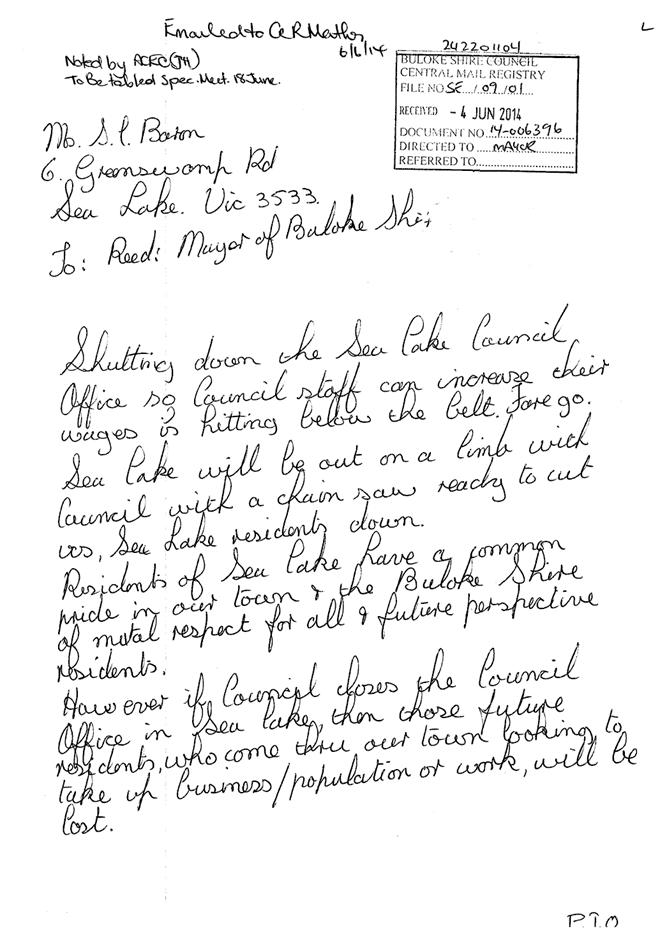 Emailed to Cr R Mather
6/6/14
L
Noted by ACEC (JH)
To Be tabled Spec. Meet. 18 June.
242201104
BULOKE SHIRE COUNCIL
CENTRAL MAIL REGISTRY
FILE NO SE / 09 / 01
RECEIVED - 4 JUN 2014
DOCUMENT NO. 14-006396
DIRECTED TO MAYOR
REFERRED TO
S. L. Baron
6. Greenswamp Rd
Sea Lake. Vic 3533.
To: Reed: Mayor of Buloke Shi
Shutting down the Sea Lake Council
Office so Council staff can increase their
wages is hitting below the belt. Fore go.
Sea Lake will be out on a limb with
Council with a chain saw ready to cut
us, Sea Lake residents down.
Residents of Sea Lake have a common
pride in our town & the Buloke Shire
of mutal respect for all & future perspective
residents.
However if Council closes the Council
Office in Sea Lake, then those future
residents, who come thru our town looking to
take up business/population or work, will be
lost.
P.T.O